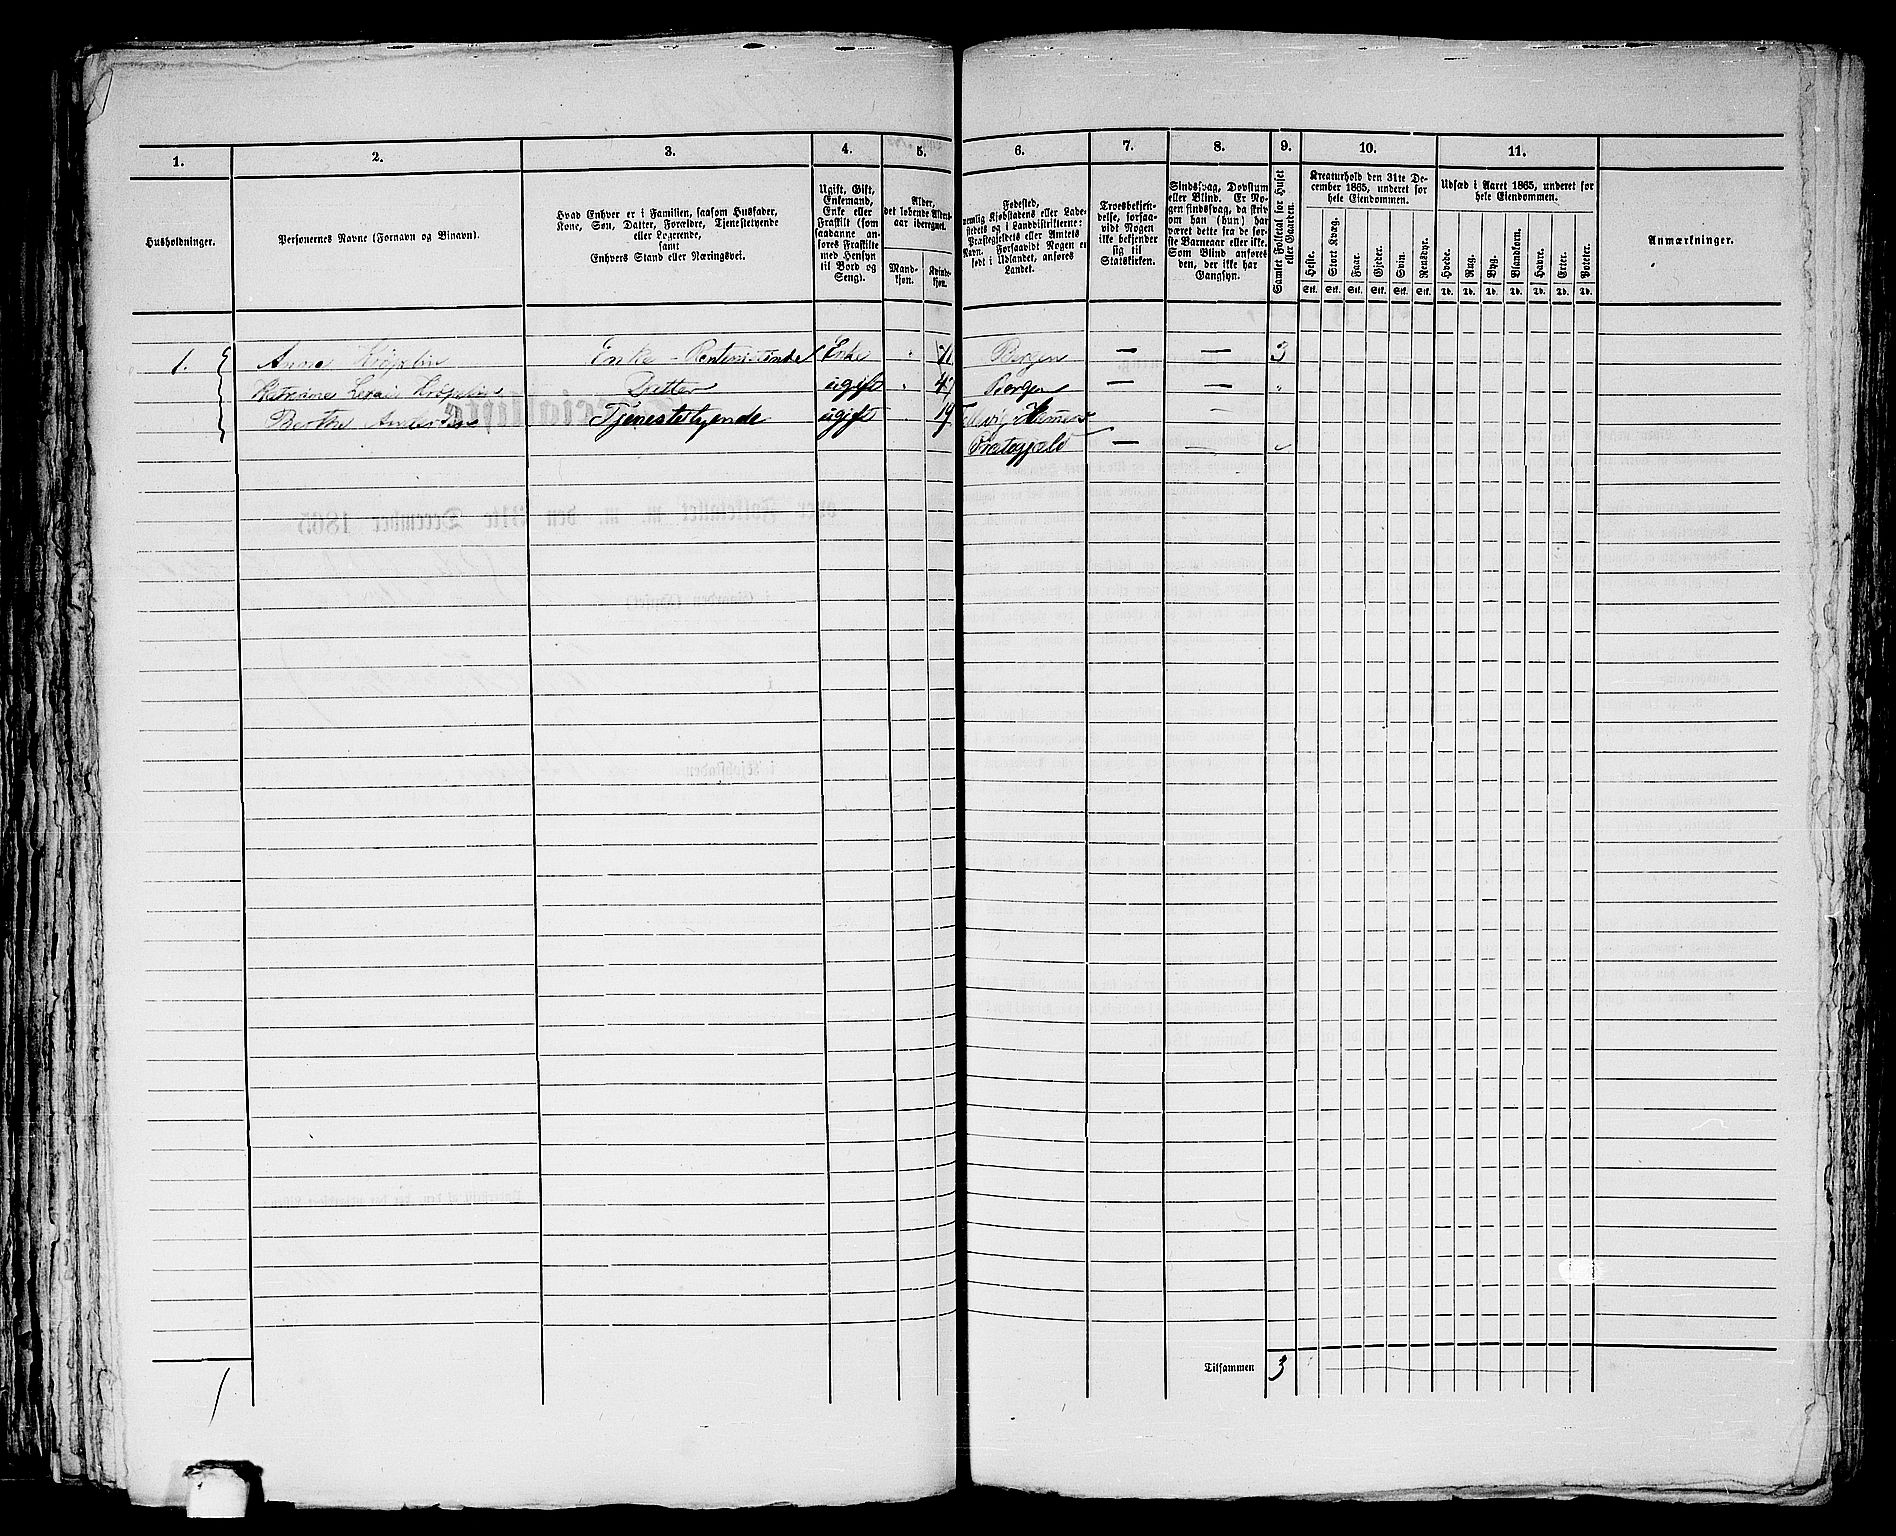 1. 2. 3. 4. 5. 6. 7. 8. 9. 10. 11.
Husholdninger.
Personernes Navne (Fornavn og Binavn).
Hvad Enhver er i Familien, saasom Husfader,
Kone, Søn, Datter, Forældre, Tjenestetyende
eller Logerende,
samt
Enhvers Stand eller Næringsvei.
Ugift, Gift,
Enkemand,
Enke eller
Fraskilt (som
saadanne an-
føres Fraskilte
med Hensyn
til Bord og
Seng).
Alder,
det løbende Alders-
aar iberegnet.
Mand-
kjøn.
Kvinde-
kjøn.
Fødested,
nemlig Kjøbstadens eller Lade-
stedets og i Landdistrikterne:
Præstegjeldets eller Amtets
Navn. Forsaavidt Nogen er
født i Udlandet, anføres
Landet.
Troesbekjen-
delse, forsaa-
vidt Nogen
ikke bekjender
sig til
Statskirken.
Sindssvag, Døvstum
eller Blind. Er No-
gen sindssvag, da skriv
om han (hun) har
været dette fra de før-
ste Barneaar eller ikke.
Som Blind anføres
den, der ikke har
Gangsyn.
Samlet Folketal for Huset
eller Gaarden.
Kreaturhold den 31te De-
cember 1865, underet for
hele Eiendommen.
Heste. Stort Kvæg. Faar. Gjeder. Svin. Rensdyr.
Stk. Stk. Stk. Stk. Stk. Stk.
Udsæd i Aaret 1865, underet for
hele Eiendommen.
Hvede. Rug. Byg. Blandkorn. Havre. Erter. Poteter.
Td. Td. Td. Td. Td. Td. Td.
Anmærkninger.
1. Anna Köpplin Enke - Enke 71 Bergen — — 3
Datter ugift 47 Bergen — —
Berthe Tjenestetyende ugift 19
Præstegjeld — —
Tilsammen 3
1